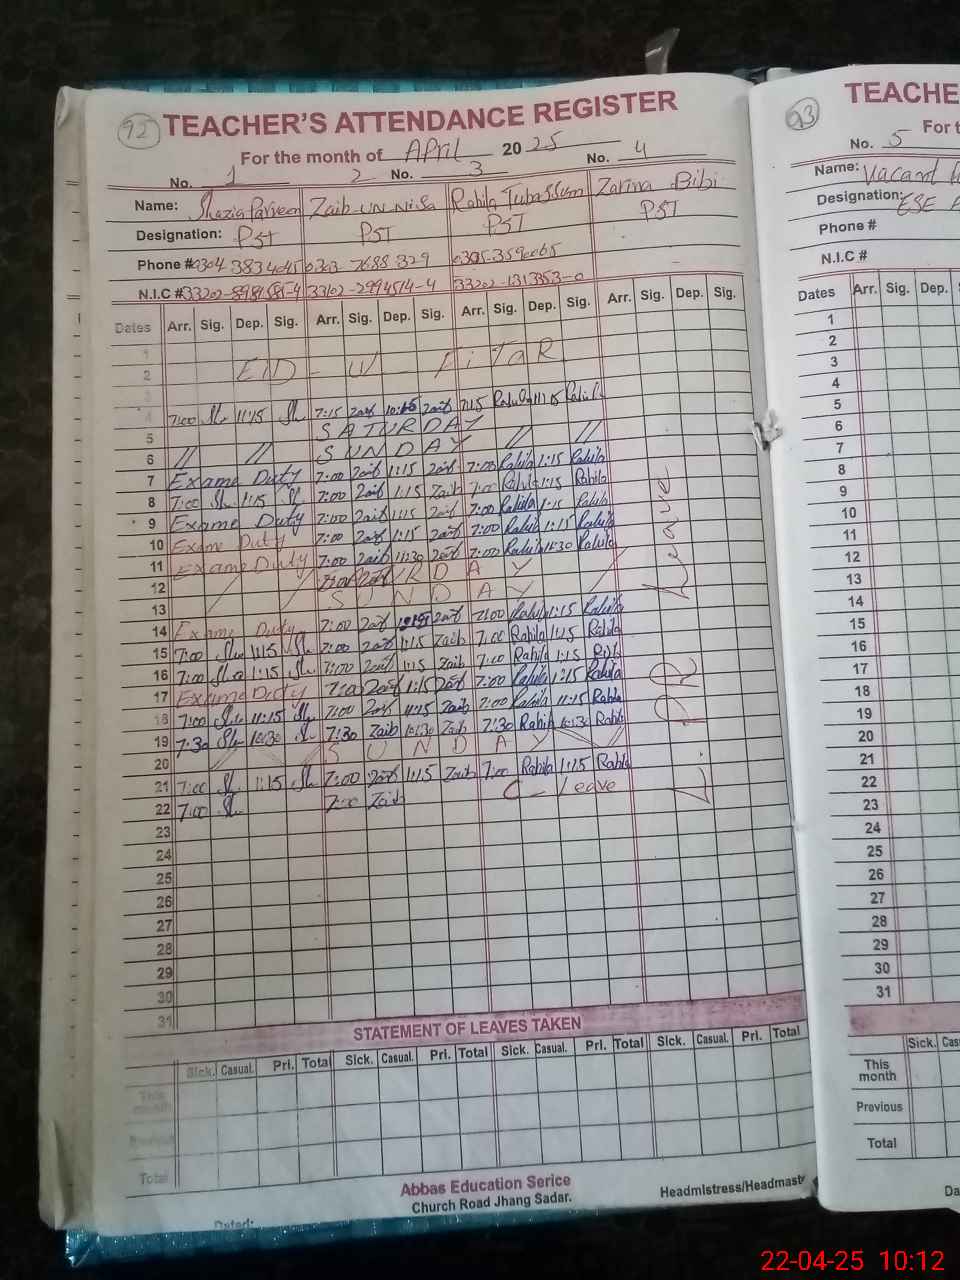 92 TEACHER'S ATTENDANCE REGISTER
For the month of April 2025
No. 1 2 No. 3 No. 4
Name: Shazia Parveen Zaib-UN-Nisa Rahila Tubassum Zarina Bibi
Designation: PST PST PST PST
Phone # 0304 3834045 0303-7688329 0305-3590065
N.I.C # 33202-8981585-4 33102-2994514-4 33202-1313353-0
Dates Arr. Sig. Dep. Sig. Arr. Sig. Dep. Sig. Arr. Sig. Dep. Sig. Arr. Sig. Dep. Sig.
1
2 EID - U FiTaR
3
4 7:00 Sh 11:15 Sh 7:15 Zaib Zaib 7:15 Rahila 11:15 Rahila
5 SATURDAY
6 // // SUNDAY // //
7 Exame Duty 7:00 Zaib 1:15 Zaib 7:00 Rahila 1:15 Rahila
8 7:00 Sh 1:15 Sh 7:00 Zaib 1:15 Zaib 7:00 Rahila 1:15 Rahila
9 Exame Duty 7:00 Zaib 1:15 Zaib 7:00 Rahila 1:15 Rahila
10 Exame Duty 7:00 Zaib 1:15 Zaib 7:00 Rahila 1:15 Rahila
11 Exame Duty 7:00 Zaib 11:30 Zaib 7:00 Rahila 11:30 Rahila
12 RDAY
13 SUNDAY
14 Exame Duty 7:00 Zaib Zaib 7:00 Rahila 1:15 Rahila
15 7:00 Sh 1:15 Sh 7:00 Zaib 1:15 Zaib 7:00 Rahila 1:15 Rahila
16 7:00 Sh 1:15 Sh 7:00 Zaib 1:15 Zaib 7:00 Rahila 1:15 Rahila
17 Exame Duty 7:00 Zaib 1:15 Zaib 7:00 Rahila 1:15 Rahila
18 7:00 Sh 11:15 Sh 7:00 Zaib 11:15 Zaib 7:00 Rahila 11:15 Rahila
19 7:30 Sh 10:30 Sh 7:30 Zaib 10:30 Zaib 7:30 Rahila 10:30 Rahila
20 SUNDAY
21 7:00 Sh 1:15 Sh 7:00 Zaib 1:15 Zaib 7:00 Rahila 1:15 Rahila
22 7:00 Sh 7:00 Zaib C - Leave
L. PR Leave
23
24
25
26
27
28
29
30
31
STATEMENT OF LEAVES TAKEN
Sick. Casual. Pri. Total Sick. Casual. Pri. Total Sick. Casual. Pri. Total Sick. Casual. Pri. Total
This month
Previous
Total
Abbas Education Serice
Church Road Jhang Sadar.
Dated: Headmistress/Headmast
93 TEACHE
For t
No. 5
Name: Vacant
Designation: ESE
Phone #
N.I.C #
Dates Arr. Sig. Dep.
1
2
3
4
5
6
7
8
9
10
11
12
13
14
15
16
17
18
19
20
21
22
23
24
25
26
27
28
29
30
31
Sick. Cas
This month
Previous
Total
Da
22-04-25 10:12